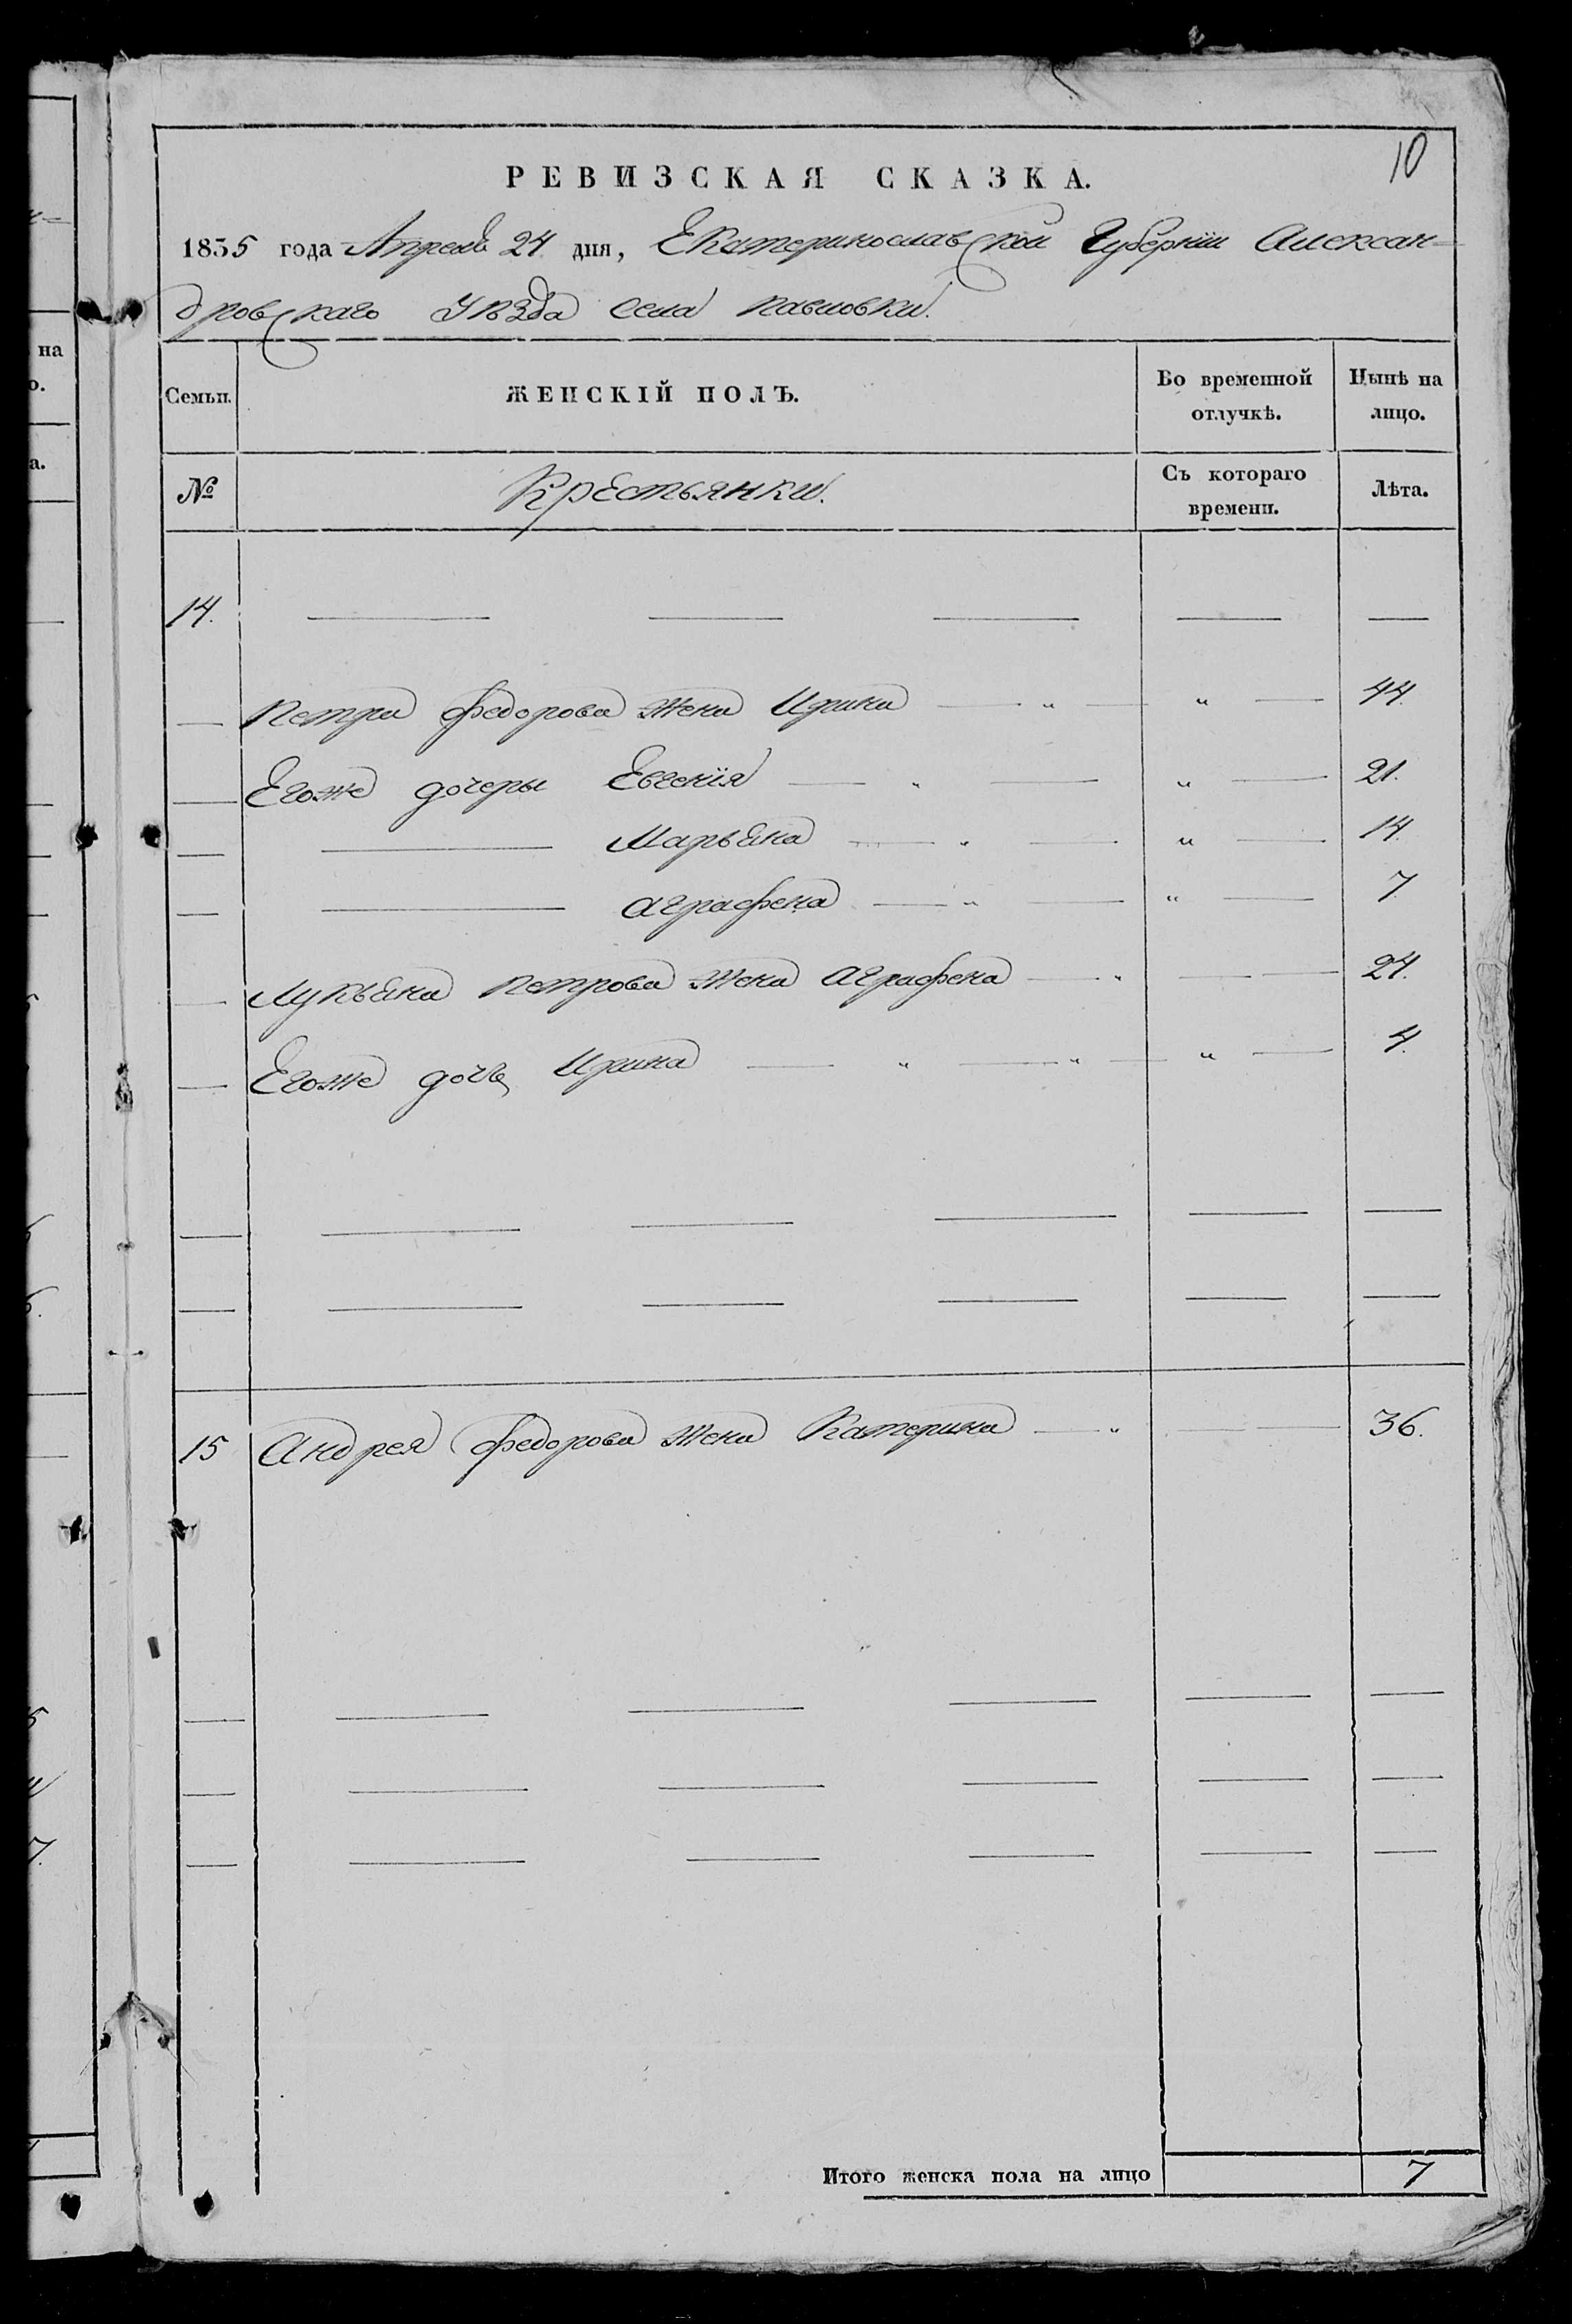 10
РЕВИЗСКАЯ СКАЗКА.
1835 года Апреля 24 дня, Екатеринославской Губерніи Алексан=
дровскаго Уѣзда села Павловки.
Семьи. ЖЕНСКІЙ ПОЛЪ. Во временной отлучкѣ. Нынѣ на лицо.
№ Крестьянки. Съ котораго времени. Лѣта.
14.
Петра Федорова жена Ирина 44.
Егоже дочеры Евгенія 21.
Марьяна 14.
Аграфена 7.
Лукьяна Петрова жена Аграфена 24.
Егоже дочь Ирина 4.
15 Андрея Федорова жена Катерина 36.
Итого женска пола на лицо 7